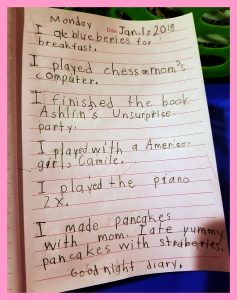 Monday
Date Jan. 1, 2018
I ate blueberries for
breakfast.
I played chess on mom's
computer.
I finished the book
Ashlin's Unsurprise
party.
I played with a American
girl, Camile.
I played the piano
2x.
I made pancakes
with mom. I ate yummy
pancakes with
Goodnight diary.